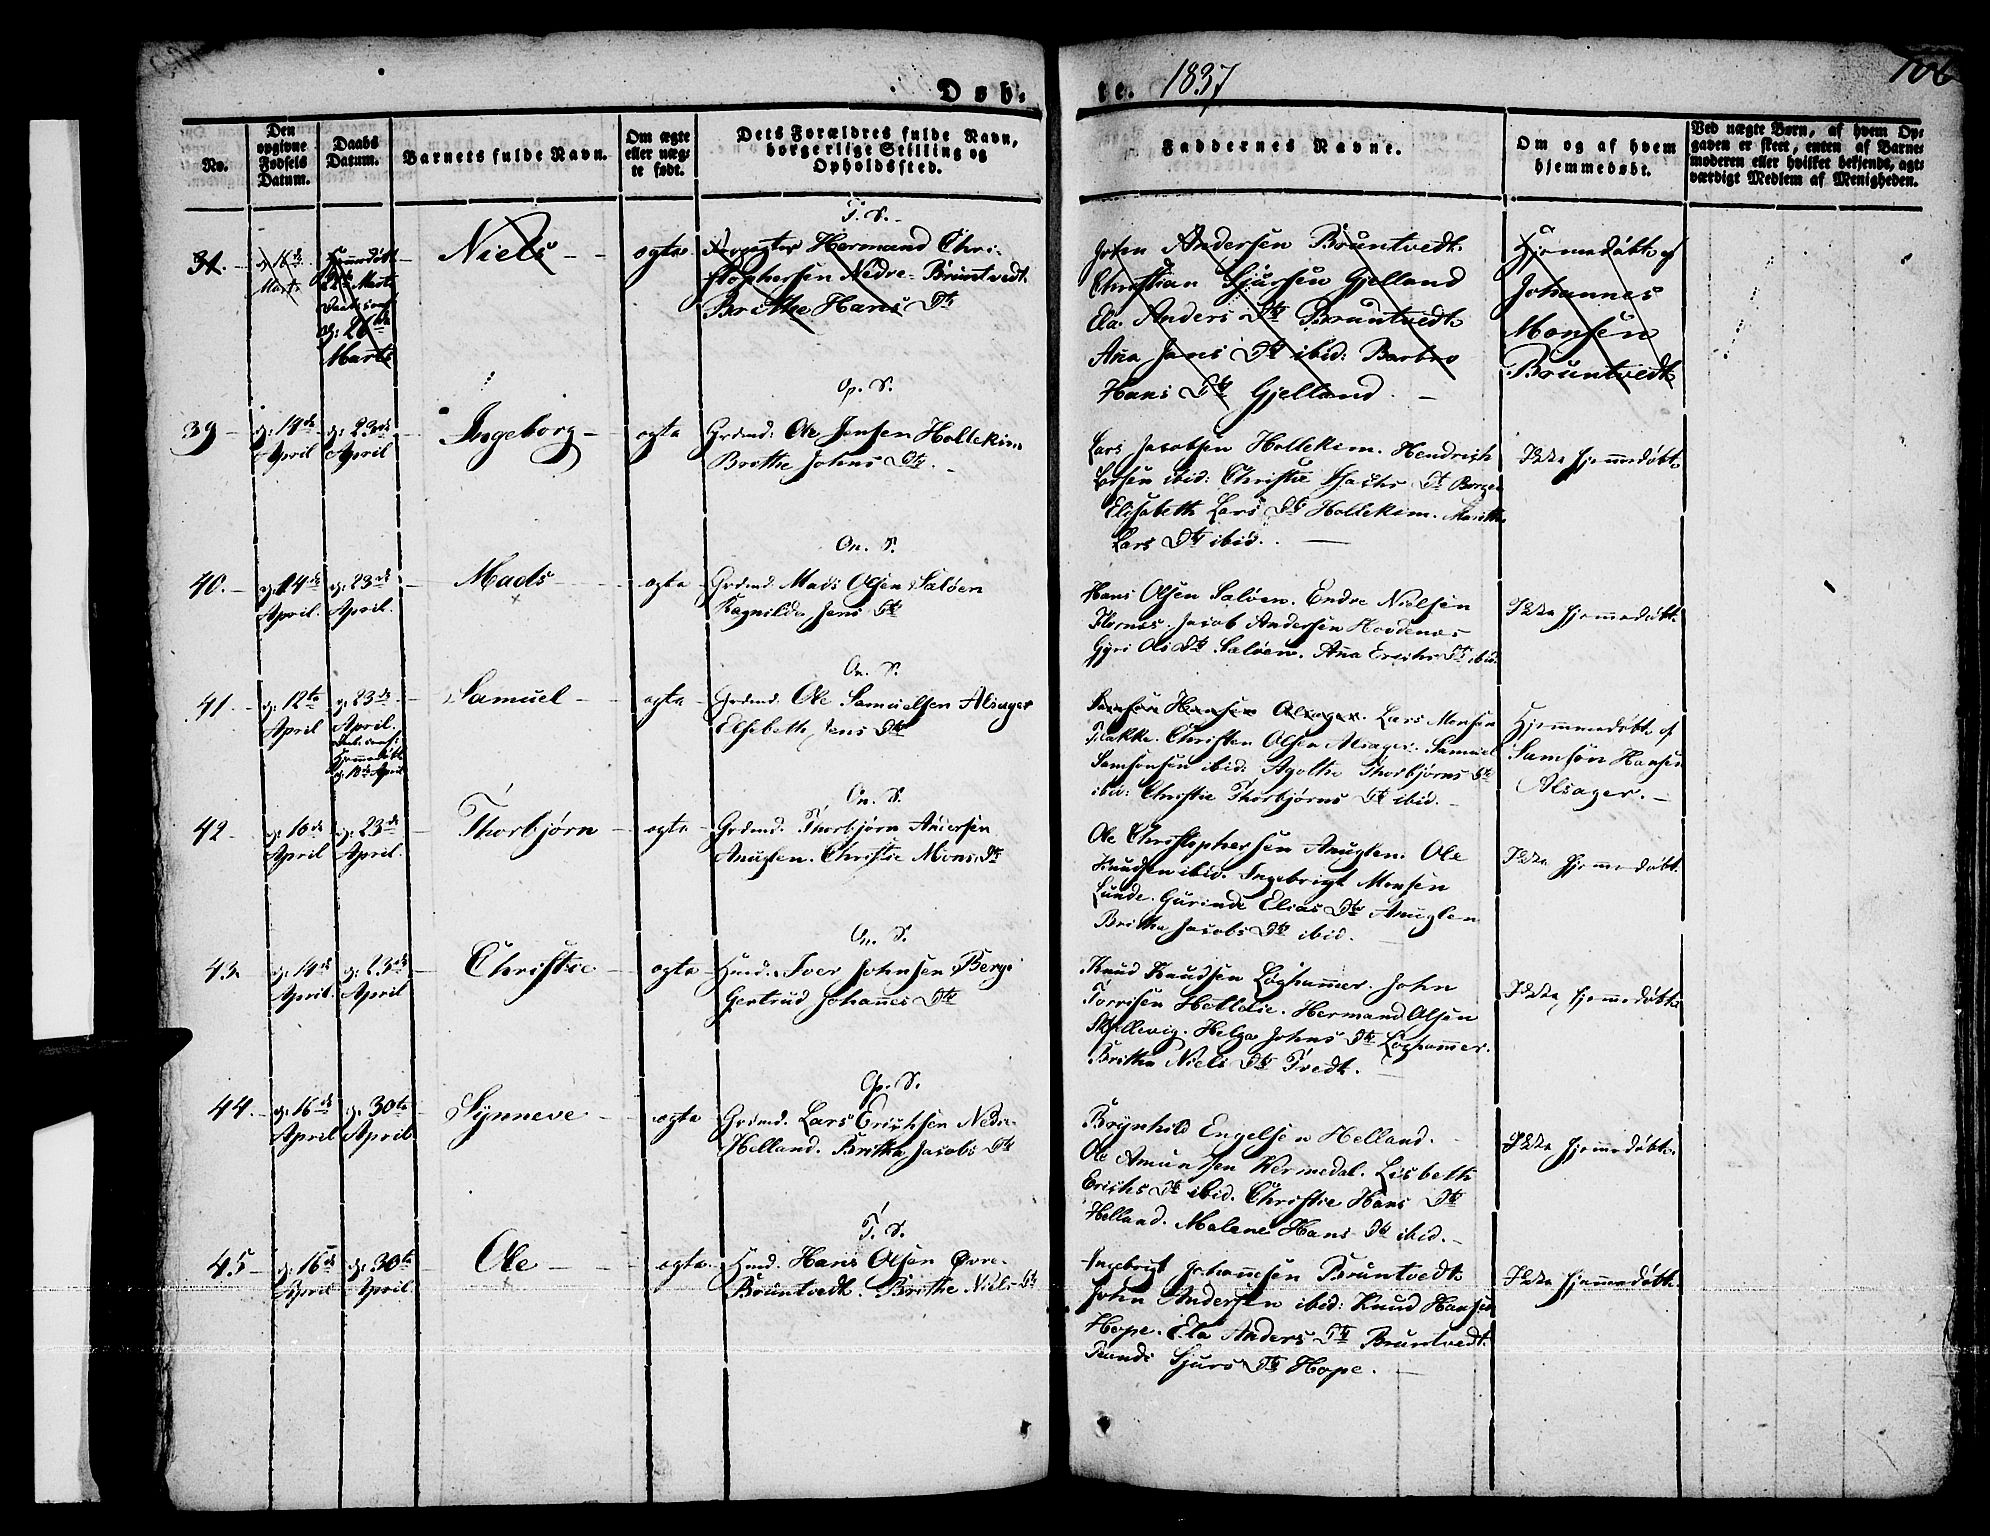 Døb-
te. 1837
106
No.
Den opgivne Fødsels Datum.
Daabs Datum.
Barnets fulde Navn.
Om ægte eller uægte født.
Dets Forældres fulde Navn, borgerlige Stilling og Opholdssted.
Faddernes Navne.
Om og af hvem hjemmedøbt.
Ved uægte Børn, af hvem Opgaven er skeet, enten af Barnemoderen eller hvilket bekjendt, agtværdigt Medlem af Menigheden.
T. S.
d: 16de Marts
26de Marts
Niels
ægte
Hermand Chri-
stophersen Nedre-Bruntvedt
Brithe Hans Dtr
Andersen Bruntvedt
Christian Sjursen Gjelland
Ela Anders Dtr Bruntvedt
Aña Jans Dtr ibid: Barbro
Hans Dtr Gjelland.
Hjemmedøbt af
Johannes
Monsen
Bruntvedt
Op. S.
39
d: 14de April
d: 23de April
Ingeborg
ægte
Grdmd: Ole Jensen Hollekim
Brithe Johns Dtr.
Lars Jacobsen Hollekim. Hendrich
ibid: Christie Dtr Berge
Elisabeth Lars Dtr Hollekim. Marithe
Lars Dtr ibid.
Ikke hjemmedøbt
On. S.
40.
d: 14de April.
d: 23de April.
Mads
ægte
Grdmd. Mads Olsen Saløen
Ragnilde Jens Dtr
Hans Olsen Saløen. Endre Nielsen
Jacob Andersen Hovdenes
Gyri Ols Dtr Saløen. Aña Erichs Dtr ibid.
Ikke hjemmedøbt.
On. S.
41.
d: 12te April
d: 23de April
Hjemmedøbt
d: 13de April
Samuel
ægte
Grdmd. Ole Samuelsen Alsager
Elsebeth Jens Dtr
Samson Hansen Alsager. Lars Monsen
Flakke. Christen Olsen Alsager. Samuel
Samsonsen ibid: Agathe Thorbjørns Dtr
ibid: Christie Thorbjørns Dtr ibid.
Hjemmedøbt af
Samson Hansen
Alsager.
On. S.
42
d: 16de April
d: 23de April.
Thorbjørn
ægte
Grdmd. Thorbjørn Andersen
Anuglen. Christie Mons Dtr
Ole Christophersen Anuglen. Ole
Knudsen ibid. Ingebrigt Monsen
Lunde. Gurinde Elias Dtr Anuglen
Brithe Jacobs Dtr ibid.
Ikke hjemmedøbt.
On. S.
43
d: 14de April.
d: 23de April
Christie
ægte
Husmd. Iver Johnsen Berge
Gertrud Johañes Dtr
Knud Knudsen Løghammer. John
Torrisen Hatletie. Hermand Olsen
Helge Johns Dtr Løghammer.
Brithe Niels Dtr Tvedt.
Ikke hjemmedøbt
Op. S.
44.
d: 16de April
d: 30te April
Synneve
ægte
Grdmd. Lars Erichsen Nedre
Helland. Brithe Jacobs Dtr
Brynhild Engelsen Helland.
Ole Amundsen Kermedal. Lisbeth
Erichs Dtr ibid. Christie Hans Dtr
Helland. Malene Hans Dtr ibid.
Ikke hjemmedøbt.
T. S.
45
d: 16de April
d: 30te April.
Ole
ægte
Husmd. Hans Olsen Øvre-
Bruntvedt. Brithe Niels Dtr
Ingebrigt Johañesen Bruntvedt
John Andersen ibid: Knud Hansen
Hope. Ela Anders Dtr Bruntvedt.
Randi Sjurs Dtr Hope.
Ikke hjemmedøbt